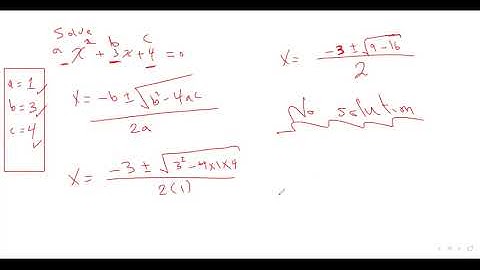 Solve
a b c
x² + 3x + 4 = 0
a = 1
b = 3
c = 4
x = -b ± √b² - 4ac / 2a
x = -3 ± √3² - 4x1x4 / 2(1)
x = -3 ± √9 - 16 / 2
No solution